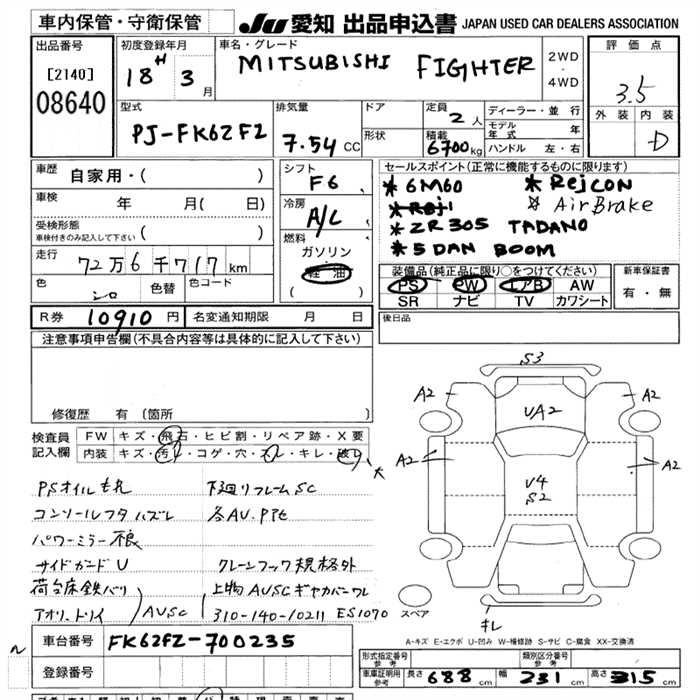 車内保管・守衛保管
JU 愛知 出品申込書 JAPAN USED CAR DEALERS ASSOCIATION
出品番号
[2140]
08640
初度登録年月
18H 3月
車名・グレード
MITSUBISHI FIGHTER
2WD
・
4WD
評価点
3.5
外装 内装
D
型式
PJ-FK62FZ
排気量
7.54 CC
ドア
形状
定員
2人
積載
6700kg
ディーラー・並行
モデル年式 年
ハンドル 左・右
車歴
自家用・( )
車検
年 月( 日)
受検形態
車検付きのみ記入して下さい ( )
走行
72万6千717km
色
シロ
色替
色コード
シフト
F6
冷房
A/C
燃料
ガソリン
軽油
( )
セールスポイント(正常に機能するものに限ります)
* 6M60 * RejCON
* Rej1 ☆ AirBrake
* ZR305 TADANO
* 5DAN BOOM
装備品(純正品に限り○をつけてください)
PS PW エアB AW
SR ナビ TV カワシート
新車保証書
有・無
R券 10910円 名変通知期限 月 日
後日品
注意事項申告欄(不具合内容等は具体的に記入して下さい)
修復歴 有〔箇所 〕
検査員記入欄
FW キズ・飛石・ヒビ割・リペア跡・X要
内装 キズ・汚レ・コゲ・穴・スレ・キレ・破レ
PSオイルもれ 下廻リフレームSC
コンソールフタハズレ 各AU.P他
パワーミラー不良
サイドガードU クレーンフック規格外
荷台床鉄バリ 上物AUSCギヤカバーワレ
アオリ.トリイ AUSC 310-140-10211 ES1070
S3
A2
A2
UA2
A2
A2
V4
S2
スペア
キレ
A-キズ E-エクボ U-凹み W-補修跡 S-サビ C-腐食 XX-交換済
車台番号 FK62FZ-700235
登録番号
形式指定番号
参考
類別区分番号
参考
車庫証明用
参考
長さ 688 cm 幅 231 cm 高さ 315 cm